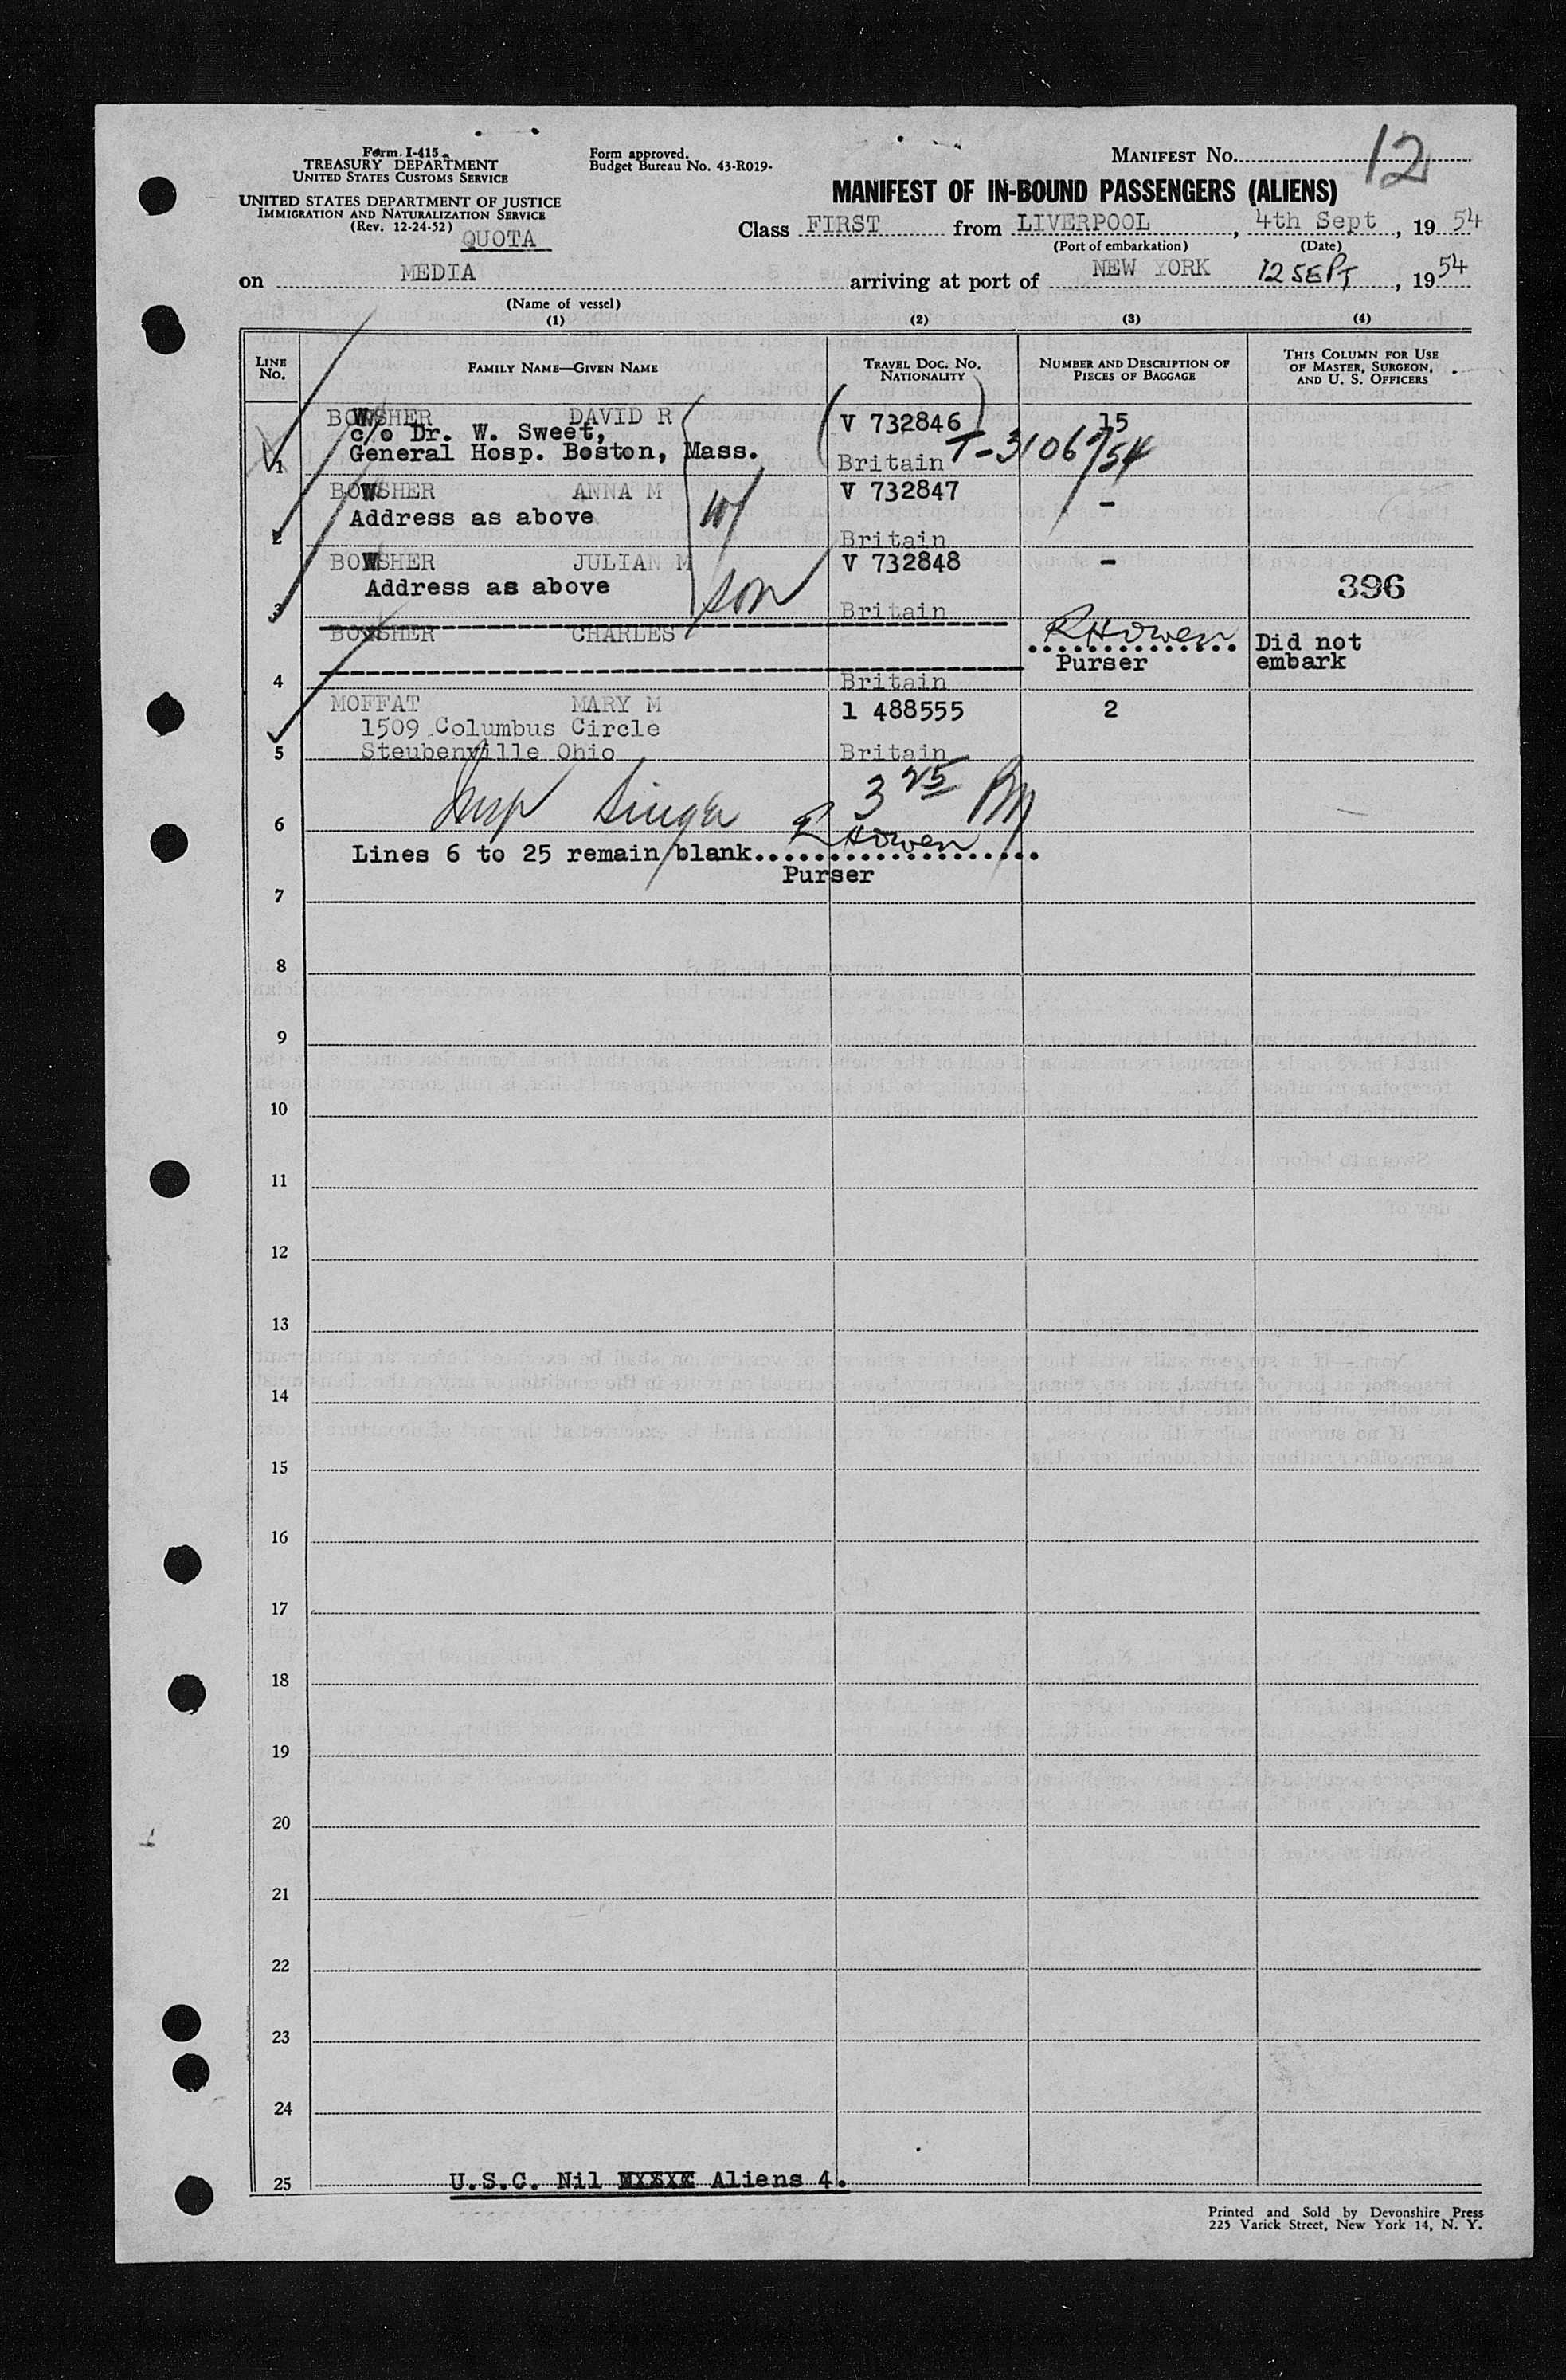 Form. I-415
TREASURY DEPARTMENT
UNITED STATES CUSTOMS SERVICE
UNITED STATES DEPARTMENT OF JUSTICE
IMMIGRATION AND NATURALIZATION SERVICE
(Rev. 12-24-52)
QUOTA
Form approved.
Budget Bureau No. 43-R019-
MANIFEST No. 12
MANIFEST OF IN-BOUND PASSENGERS (ALIENS)
Class FIRST from LIVERPOOL, 4th Sept, 19 54
(Port of embarkation) (Date)
on MEDIA arriving at port of NEW YORK 12 SEPT, 19 54
(Name of vessel)
(1) (2) (3) (4)
LINE No. FAMILY NAME—GIVEN NAME TRAVEL DOC. NO. NATIONALITY NUMBER AND DESCRIPTION OF PIECES OF BAGGAGE THIS COLUMN FOR USE OF MASTER, SURGEON, AND U. S. OFFICERS
BOWSHER DAVID R (V 732846) 15
c/o Dr. W. Sweet,
1 General Hosp. Boston, Mass. Britain T-3106/54
BOWSHER ANNA M w/ V 732847 -
Address as above
2 Britain
BOWSHER JULIAN M V 732848 -
Address as above son 396
3 Britain
BOWSHER CHARLES RHOwen Did not
Purser embark
4 Britain
MOFFAT MARY M 1 488555 2
1509 Columbus Circle
5 Steubenville Ohio Britain
Insp Singer 3 25 PM
6
Lines 6 to 25 remain blank RHOwen
Purser
7
8
9
10
11
12
13
14
15
16
17
18
19
20
21
22
23
24
25 U.S.C. Nil Aliens 4.
Printed and Sold by Devonshire Press
225 Varick Street, New York 14, N. Y.